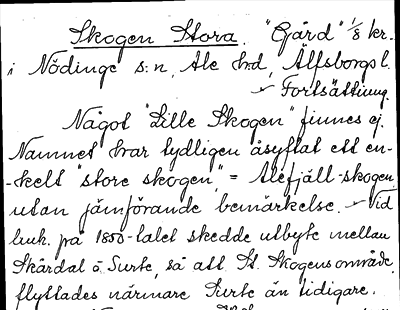 Skogen Stora "Gård" 1/8 kr.
i Nödinge s:n, Ale hd, Älfsborgs l.
Fortsättning.
Något "Lille Skogen" finnes ej.
Namnet har tydligen åsyftat ett en-
-kelt "store skogen", = Alefjäll-skogen
utan jämförande bemärkelse. - Vid
luk. på 1850-talet skedde utbyte mellan
Skårdal o Surte, så att St. Skogens område
flyttades närmare Surte än tidigare.